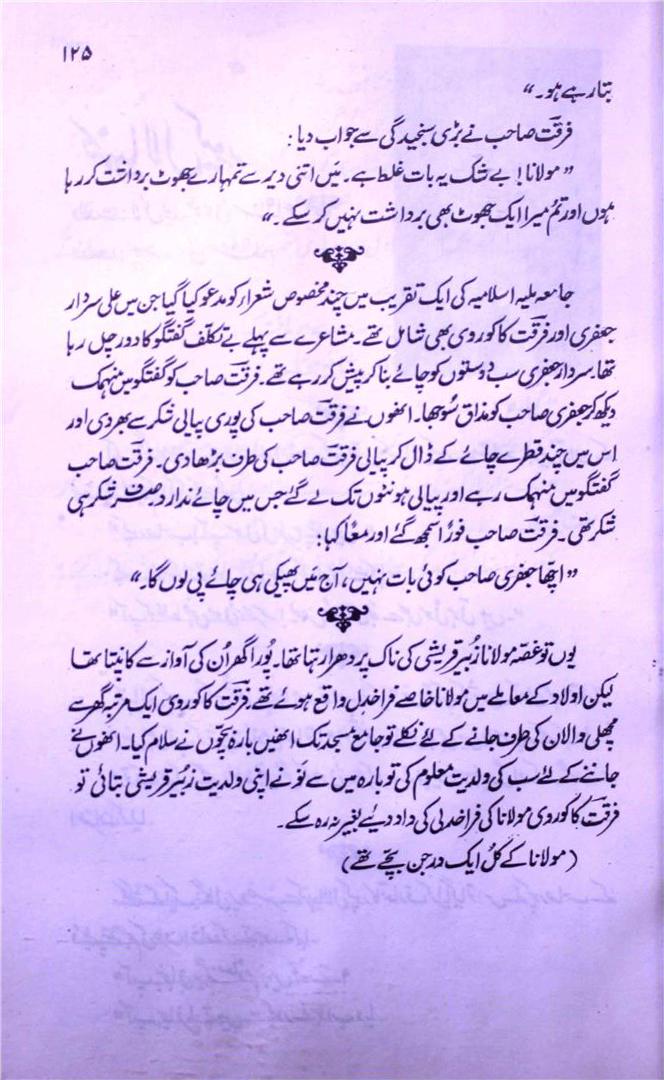 ۱۲۵
بتا رہے ہو۔“
فرقت صاحب نے بڑی سنجیدگی سے جواب دیا:
”مولانا! بے شک یہ بات غلط ہے۔ میں اتنی دیر سے تمہارے جھوٹ برداشت کر رہا
ہوں اور تم میرا ایک جھوٹ بھی برداشت نہیں کر سکے۔“
جامعہ ملیہ اسلامیہ کی ایک تقریب میں چند مخصوص شعراء کو مدعو کیا گیا جن میں علی سردار
جعفری اور فرقت کاکوروی بھی شامل تھے۔ مشاعرے سے پہلے بے تکلف گفتگو کا دور چل رہا
تھا۔ سردار جعفری سب دوستوں کو چائے بنا کر پیش کر رہے تھے۔ فرقت صاحب کو گفتگو میں منہمک
دیکھ کر جعفری صاحب کو مذاق سُوجھا۔ انھوں نے فرقت صاحب کی پوری پیالی شکر سے بھر دی اور
اس میں چند قطرے چائے کے ڈال کر پیالی فرقت صاحب کی طرف بڑھا دی۔ فرقت صاحب
گفتگو میں منہمک رہے اور پیالی ہونٹوں تک لے گئے جس میں چائے ندارد صرف شکر ہی
شکر تھی۔ فرقت صاحب فوراً سمجھ گئے اور معاً کہا:
”اچھا جعفری صاحب کوئی بات نہیں، آج میں پھیکی ہی چائے پی لوں گا۔“
یوں تو غصہ مولانا زُبیر قریشی کی ناک پر دھرا رہتا تھا۔ پُورا گھر اُن کی آواز سے کانپتا تھا
لیکن اولاد کے معاملے میں مولانا خاصے فراخدل واقع ہوئے تھے۔ فرقت کاکوروی ایک مرتبہ گھر سے
مچھلی والان کی طرف جانے کے لئے نکلے تو جامع مسجد تک انھیں بارہ بچّوں نے سلام کیا۔ انھوں نے
جاننے کے لئے سب کی ولدیت معلوم کی تو بارہ میں سے نَو نے اپنی ولدیت زُبیر قریشی بتائی تو
فرقت کاکوروی مولانا کی فراخدلی کی داد دیئے بغیر نہ رہ سکے۔
(مولانا کے کُل ایک درجن بچے تھے)